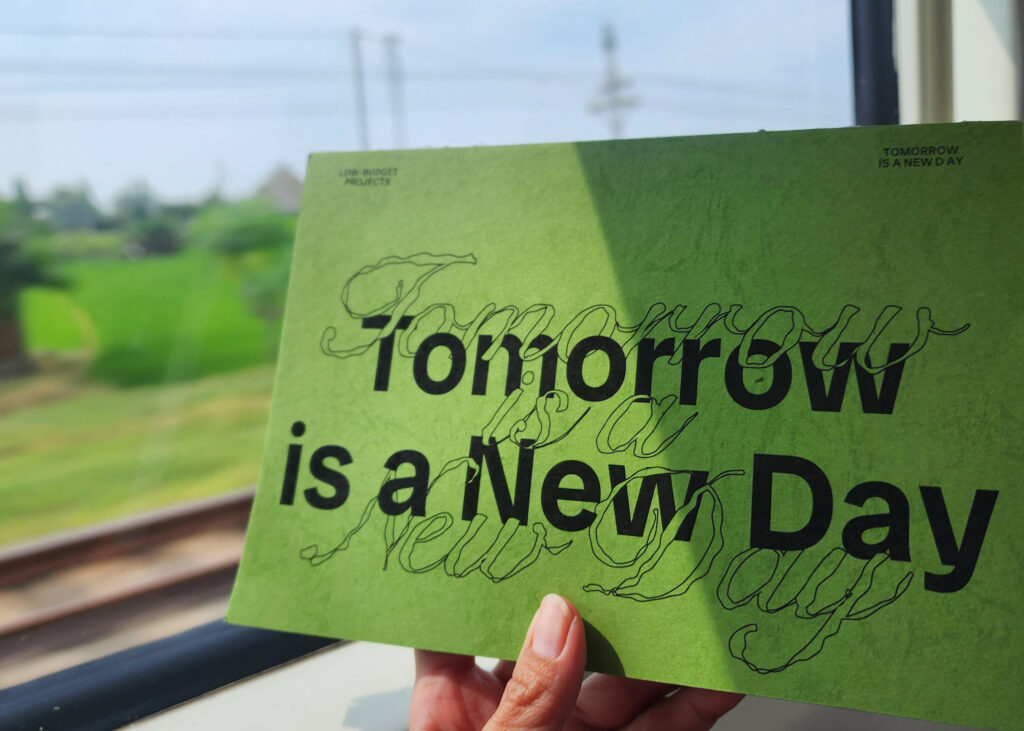 LOW-BUDGET
PROJECTS
TOMORROW
IS A NEW DAY
Tomorrow
is a New Day
Tomorrow
is a
New Day